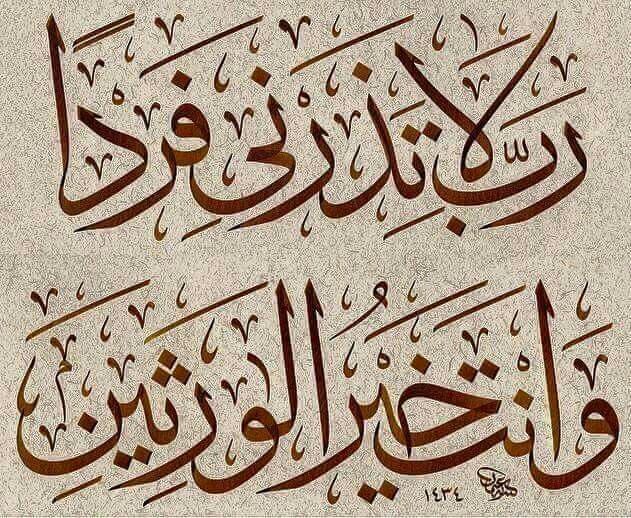 رَبِّ لَا تَذَرْنِى فَرْدًا
وَاَنْتَ خَيْرُ الْوٰرِثِينَ
١٤٣٤